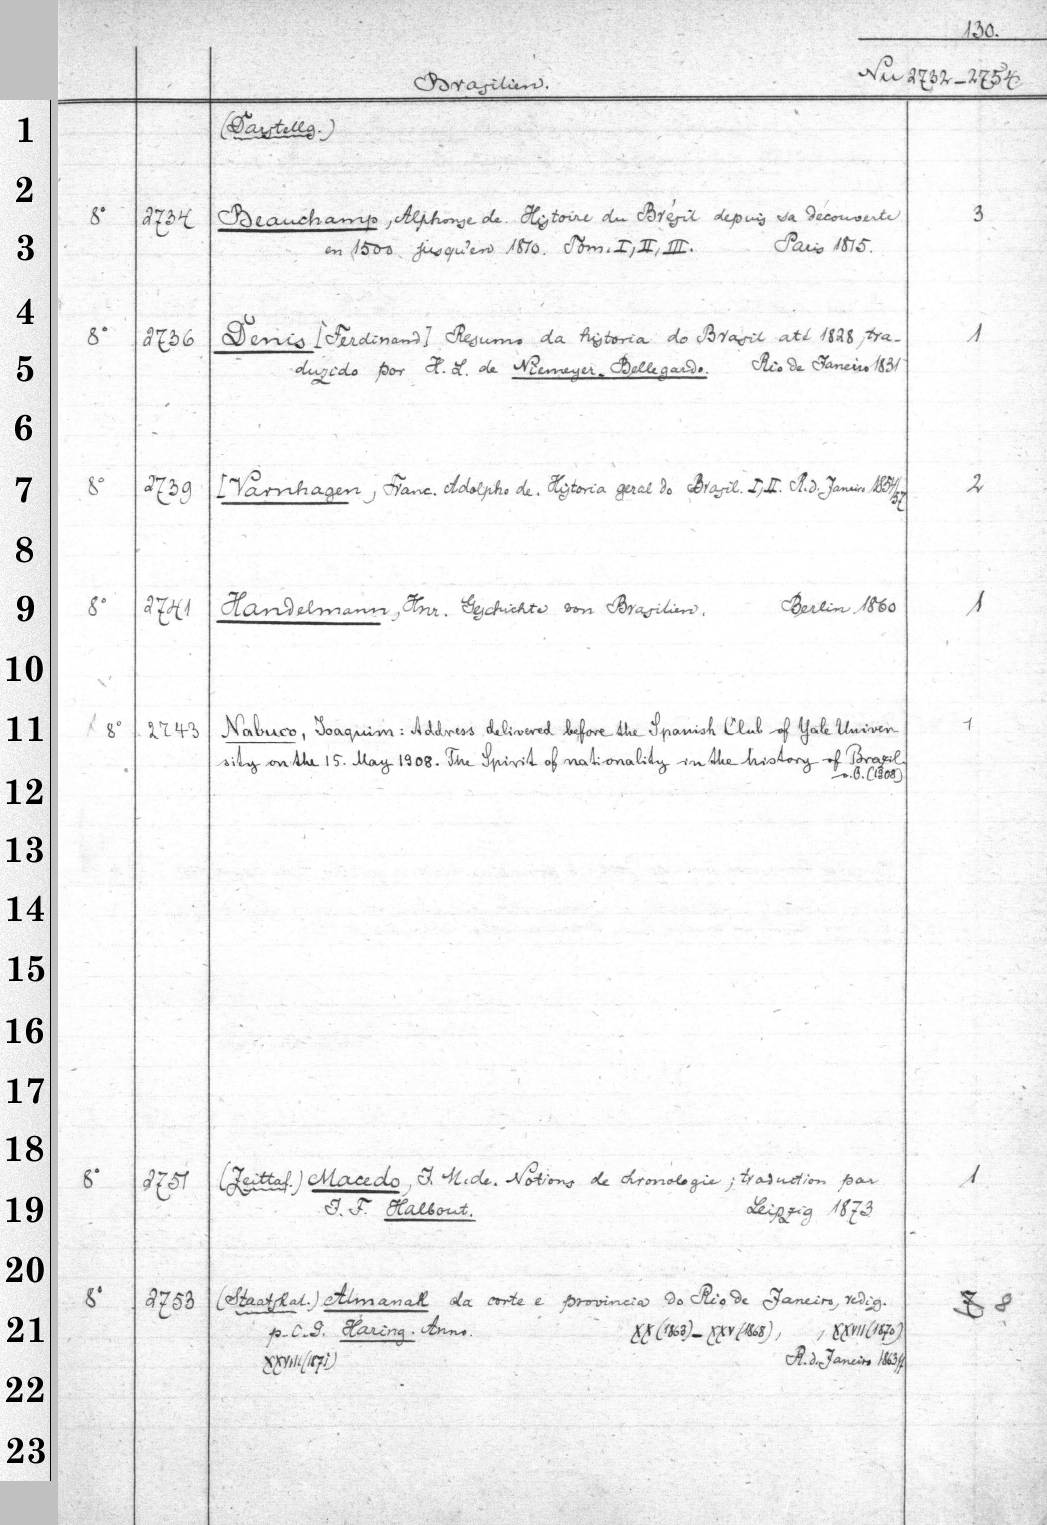 130.
Brasilien. Nu 2732-2754
1 (Darstellg.)
2
8° 2734 Beauchamp, Alphonse de. Histoire du Brésil depuis sa découverte 3
3 en 1500 jusqu'en 1810. Tom. I, II, III. Paris 1815.
4
8° 2736 Denis [Ferdinand] Resumo da historia do Brasil até 1828, tra- 1
5 duzido por H. L. de Niemeyer-Bellegarde. Rio de Janeiro 1831
6
7 8° 2739 [Varnhagen, Franc. Adolpho de. Historia geral do Brazil. I, II. R. d. Janeiro 1854/57 2
8
9 8° 2741 Handelmann, Hnr. Geschichte von Brasilien. Berlin 1860 1
10
11 8° 2743 Nabuco, Joaquim: Address delivered before the Spanish Club of Yale Univer 1
sity on the 15. May 1908. The Spirit of nationality in the history of Brazil.
12 o.O. (1908)
13
14
15
16
17
18
8° 2751 (Zeittaf.) Macedo, J. M. de. Notions de chronologie; traduction par 1
19 J. F. Halbout. Leipzig 1873
20
8° 2753 (Staatskal.) Almanak da corte e provincia do Rio de Janeiro, redig. 8
21 p. C. G. Haring. Anno. XX (1863)-XXV (1868), , XXVII (1870)
XXVIII (1871) R. d. Janeiro 1863ff
22
23